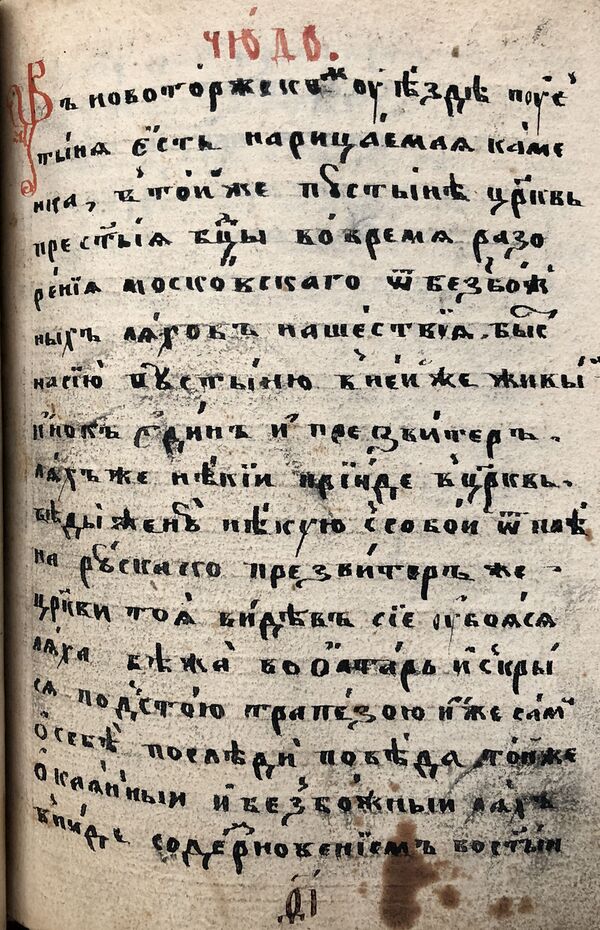 чюдо.
Въ новоторжскомъ оуѣздѣ пусⷮ
тыня єсть нарицаемая каме
нка, въ тойже пустынѣ црⷪ҇квь
престы́я бцⷣы во время разо
ре́нїя московскаго ѿ безбож
ныхъ ляховъ нашествїя. бысⷮ
на сїю пустыню в нейже живы́
и́нокъ єди́нъ и презви́теръ.
ля́хъ же нѣ́кїи прїиде в црⷪ҇квь.
веды́ жену нѣ́кую с собои ѿ плѣ
на ру́скаго презви́теръ же
цр҃кви тоя ви́дѣвъ сїе оубоя́ся
ля́ха бѣжа̀ во олта́рь и скры́
ся под ст҃о́ю трапе́зою и́же самⷤ
о себѣ̀ послѣди́ повѣ́да то́йже
окая́нныи и безбо́жныи ля́хъ
вни́де со де́рновенїемъ во ст҃ы́и
д҃і